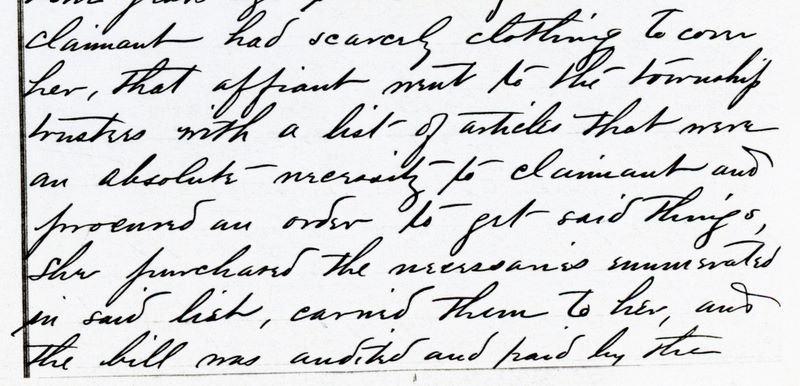 claimant had scarcely clothing to cover
her, that affiant went to the township
trustees with a list of articles that were
an absolute necessity to claimant and
procured an order to get said things,
she purchased the necessaries enumerated
in said list, carried them to her, and
the bill was audited and paid by the